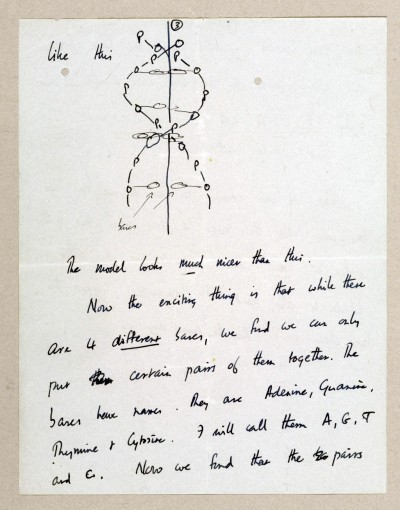 ③
like this
P
P
P
P
P
P
P
P
P
bases
The model looks much nicer than this.
Now the exciting thing is that while there
are 4 different bases, we find we can only
put certain pairs of them together. The
bases have names. They are Adenine, Guanine,
Thymine & Cytosine. I will call them A, G, T
and C. Now we find that the pairs